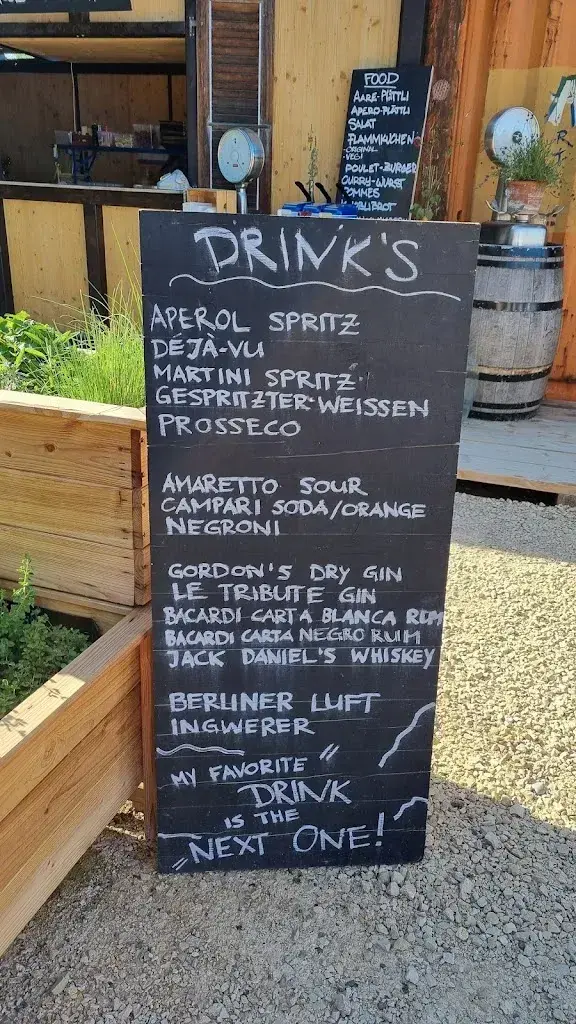 DRINK'S
APEROL SPRITZ
DÉJÀ-VU
MARTINI SPRITZ
GESPRITZTER WEISSEN
PROSSECO
AMARETTO SOUR
CAMPARI SODA/ORANGE
NEGRONI
GORDON'S DRY GIN
LE TRIBUTE GIN
BACARDI CARTA BLANCA RUM
BACARDI CARTA NEGRO RUM
JACK DANIEL'S WHISKEY
BERLINER LUFT
INGWERER
MY FAVORITE
DRINK
IS THE
NEXT ONE!
FOOD
AARE-PLÄTTLI
APERO-PLÄTTLI
SALAT
FLAMMKUCHEN
-ORIGINAL
-VEGI
POULET-BURGER
CURRY-WURST
POMMES